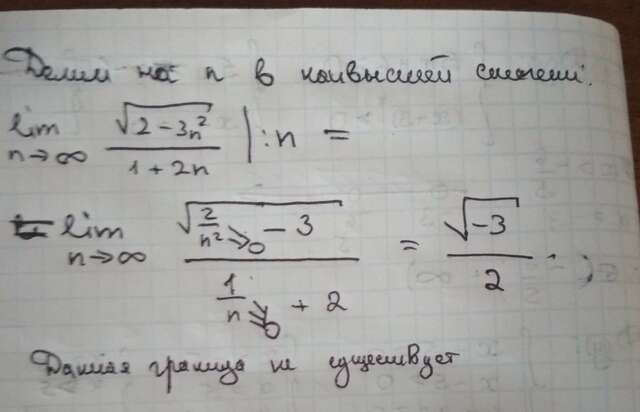 Делим на n в наивысшей степени:
lim n→∞ √(2 - 3n²) / (1 + 2n) | : n =
lim n→∞ √(2/n² →0 - 3) / (1/n →0 + 2) = √(-3) / 2 ;
Данная граница не существует